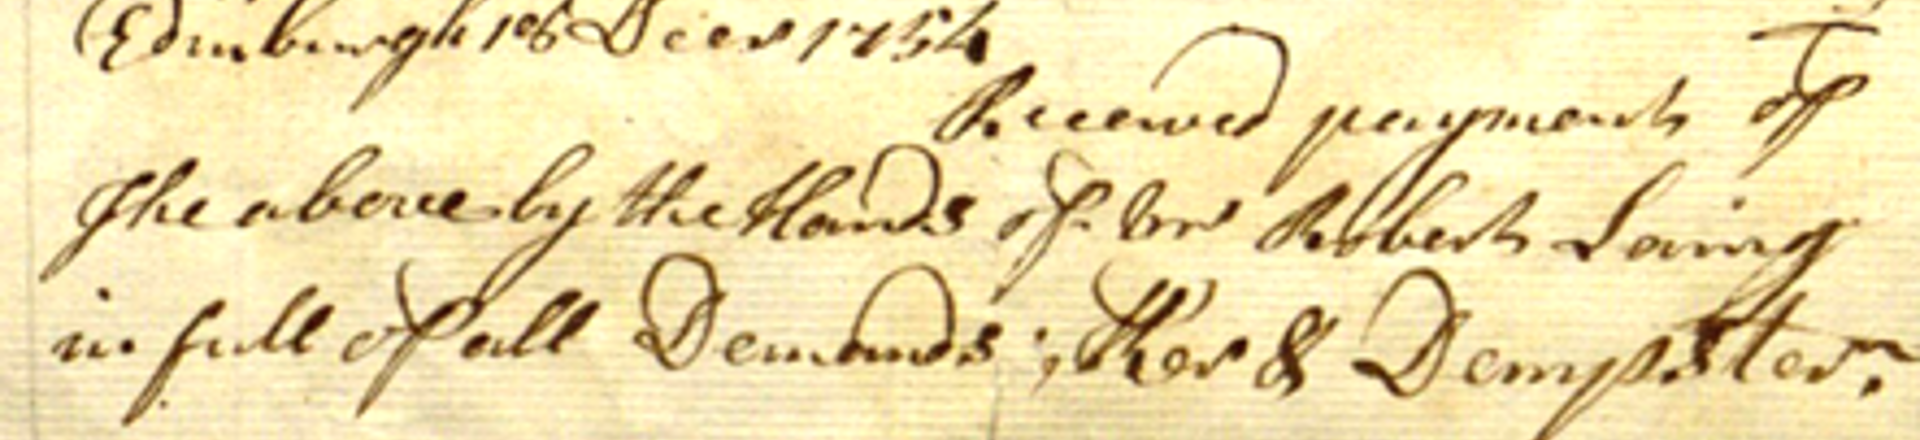 Edinburgh 18 Decer 1754
Received payment of
The above by the Hands of Mr Robert Laing
in full of all Demands; Ker & Dempster.